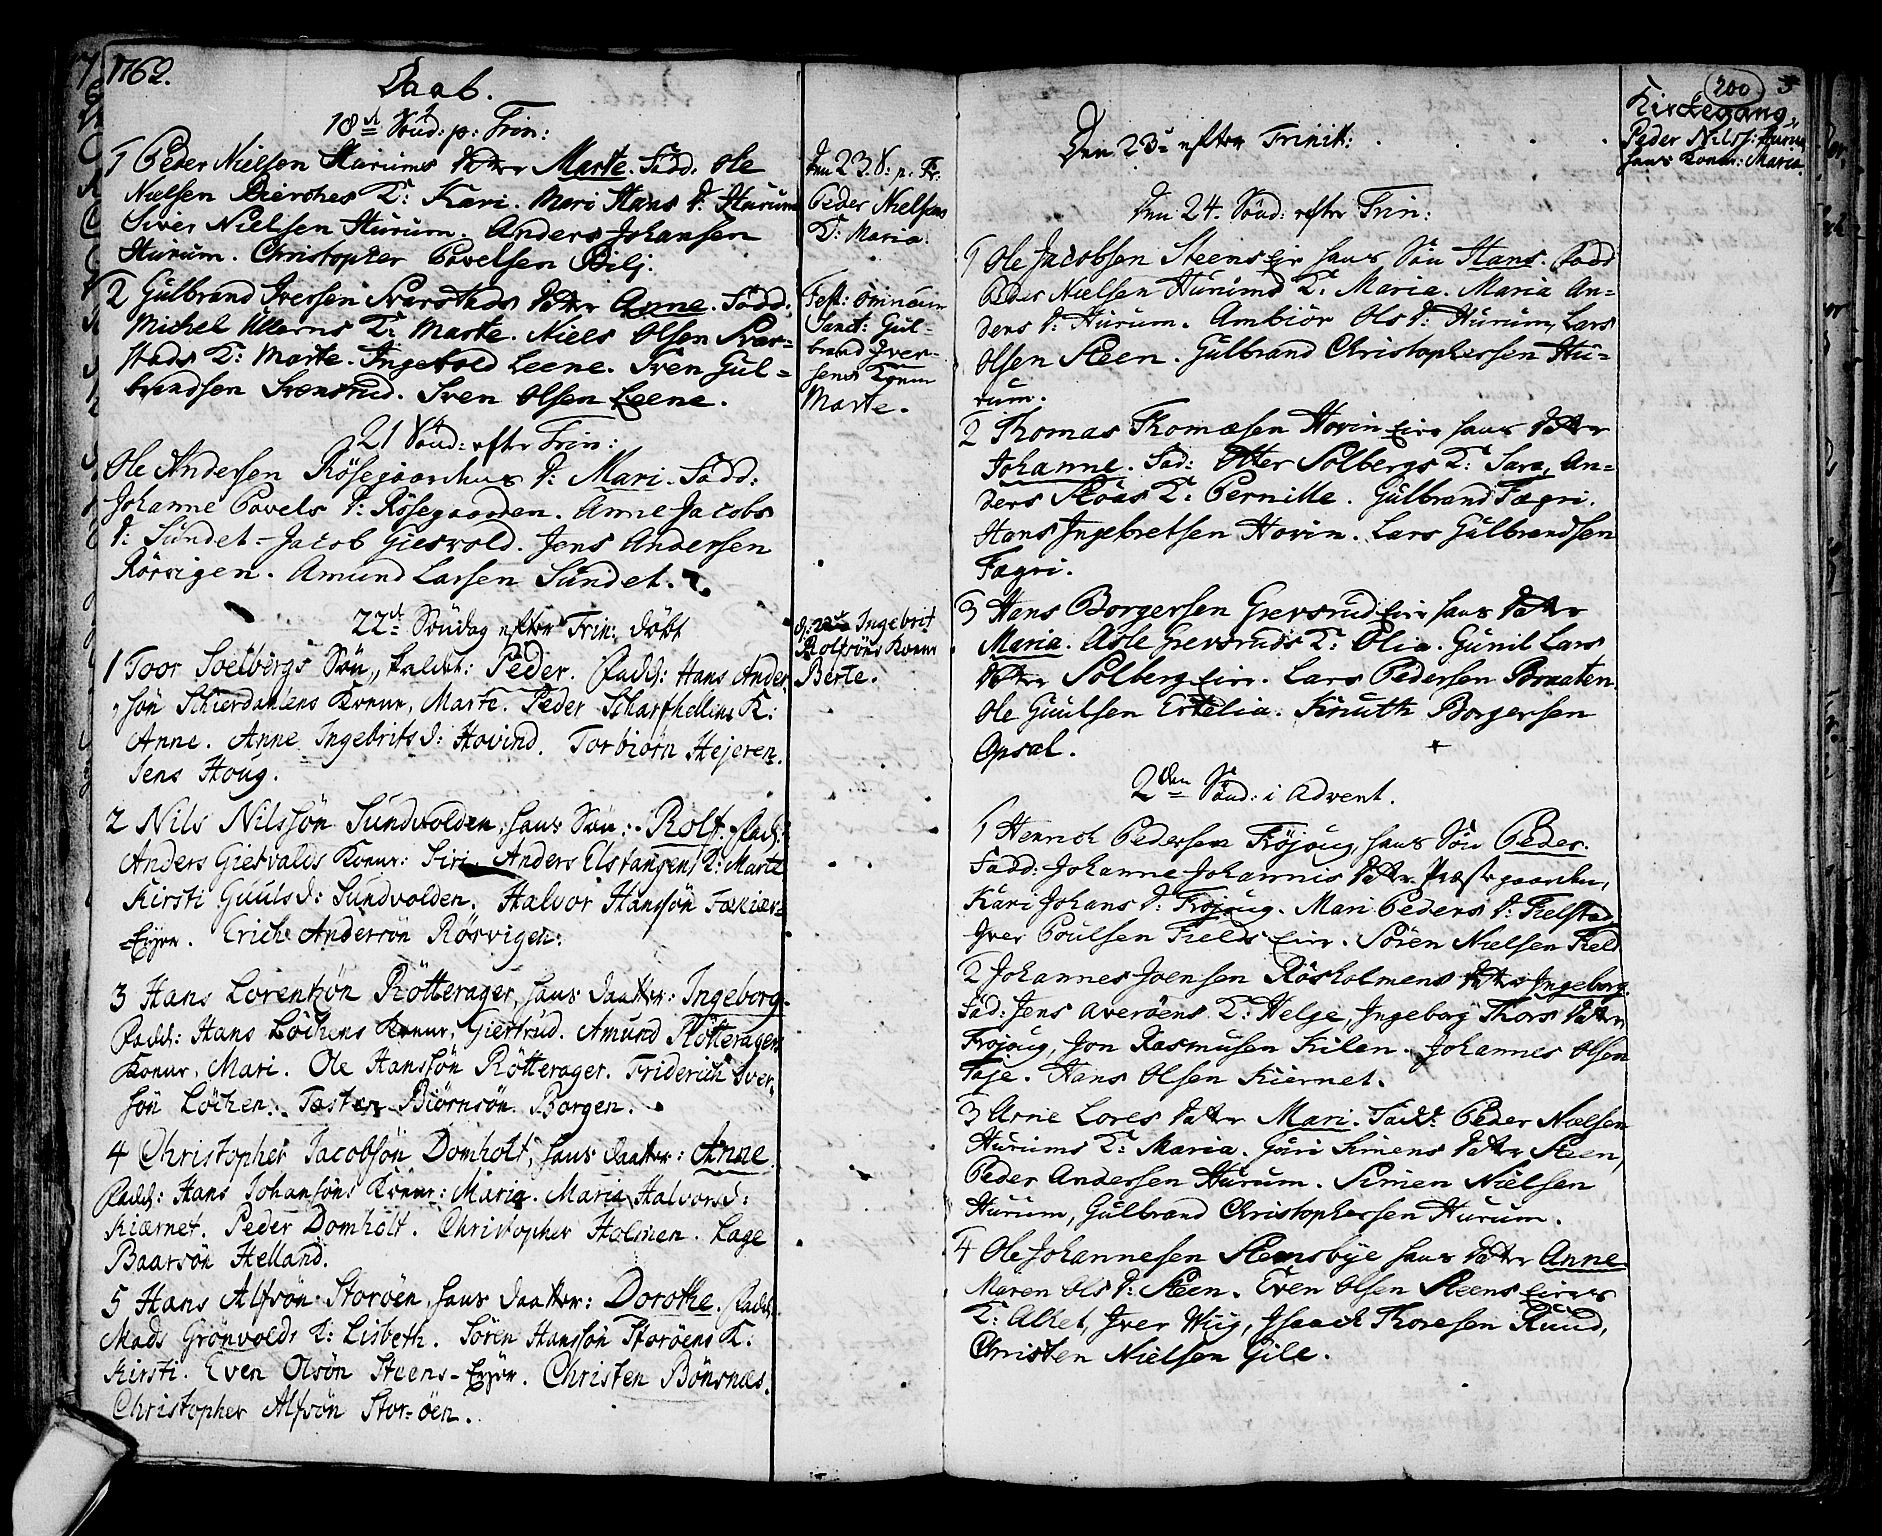 1762.
Daab.
18de Sønd: p: Trin:
1 Peder Nielsen Hurums datter Marte. Fadd: Ole
Nielsen Bierckes K: Kari. Mari Hans d: Hurum
Siver Nielsen Hurum. Anders Johansen
Hurum. Christopher Povelsen Bilj.
2 Gulbrand Iversen Svarstads datter Anne. Fadd:
Michel Ullerns K: Marte. Niels Olsen Svar-
stads K: Marte. Ingebold Leene. Sven Gul-
brandsen Svensrud. Sven Olsen Leene.
21 Sønd: efter Trin:
Ole Andersen Rösegaarden d: Mari. Fadd:
Johanne Povels d: Rösegaarden. Anne Jacobs
d: Sundet - Jacob Giesvold. Jens Andersen
Rörvigen. Amund Larsen Sundet.
22de Söndag efter Trin: döbt
1 Toor Soelbergs Søn, kaldet: Peder. Fadd: Hans Ander-
søn Skierdalens Konne, Marte. Peder Scharfhellins K:
Anne. Anne Ingebrits d: Hovind. Torbiörn Hejeren.
Jens Houg.
2 Nils Nilssøn Sundvolden, hans Søn: Rolf. Fadd:
Anders Giesvalds Konne: Siri. Anders Elstangens K: Marte
Kirsti Guuls d: Sundvolden. Halvor Hanssøn Fækiær-
Eyer. Erich Andersøn Rörvigen.
3 Hans Lorentzøn Rötterager, hans daatter: Ingeborg.
Fadd: Hans Löckens Konne, Giertrud. Amund Rötteragers
Konne, Mari. Ole Hanssøn Rötterager. Friderich Iver-
søn Löchen. Tosten Biörnsøn Borgen.
4 Christopher Jacobsøn Domholt, hans daatter: Anne.
Fadd: Hans Johansøns Konne: Maria. Maria Halvors d:
Kiærnet. Peder Domholt. Christopher Holmen. Lage
Baarsøn Helland.
5 Hans Alfsøn Storöen, hans daatter: Dorothe. Fadd:
Mads Grönvolds K: Lisbeth. Sören Hanssøn Storöens K:
Kirsti. Even Olsøn Steens-Eyer. Christen Bönsnæs.
Christopher Alfsøn Stor-öen.
den 23 S: p. Tr:
Peder Nielsens
K: Maria.
Fest: omnium
Sanct: Gul-
brand Iver-
sens Konne
Marte.
Ingebrit
Rolfsöns Konne
Berte.
Den 23de efter Trinit:
Den 24. Sønd: efter Trin:
1 Ole Jacobsen Steens eje hans Søn Hans. Fadd
Peder Nielsen Hurums K: Maria. Maria An-
ders d: Hurum. Ambior Ols d: Hurum, Lars
Olsen Steen. Gulbrand Christophersen Hu-
rum.
2 Thomas Thomæsen Hovin Eie hans datter
Johanne. Fad: Otter Solbergs K: Sara, An-
ders Skoas K: Pernille. Gulbrand Fægri.
Hans Ingebretsen Hovin. Lars Gulbrandsen
Fægri.
3 Hans Borgersen Grevsrud Eie hans datter
Maria. Asle Grevsruds K: Olia. Gunil Lars
datter Solberg Eie. Lars Pedersen Braaten.
Ole Guulsen Ertelia. Knuth Borgersen
Opsal.
2den Sønd: i Advent.
1 Henrich Pedersen Fröjoug, hans Søn Peder.
Fadd: Johanne Johannis datter Præstegaarden,
Kari Johans d: Fröjoug. Mari Peders d: Fielstad
Iver Poulsen Fields Eie. Sören Nielsen Field
2 Johannes Joensen Rösholmens datter Ingeborg.
Fad: Jens Averöens K: Helje, Ingeborg Thors datter
Fröjoug, Jon Rasmusen Kilen. Johannes Olsen
Faje. Hans Olsen Kiernet.
3 Arne Lores datter Mari. Fadd: Peder Nielsen
Hurums K: Maria. Guri Simens datter Steen,
Peder Andersen Hurum. Simen Nielsen
Hurum, Gulbrand Christophersen Hurum.
4 Ole Johannesen Steensbye hans datter Anne
Maren Ols d: Steen. Even Olsen Steens Eies
K: Alhet, Iver Wiig, Isaach Thoresen Ruud,
Christen Nielsen Gile.
200
Kirkegang.
Peder Nilss: Hurum
hans Konne: Maria.